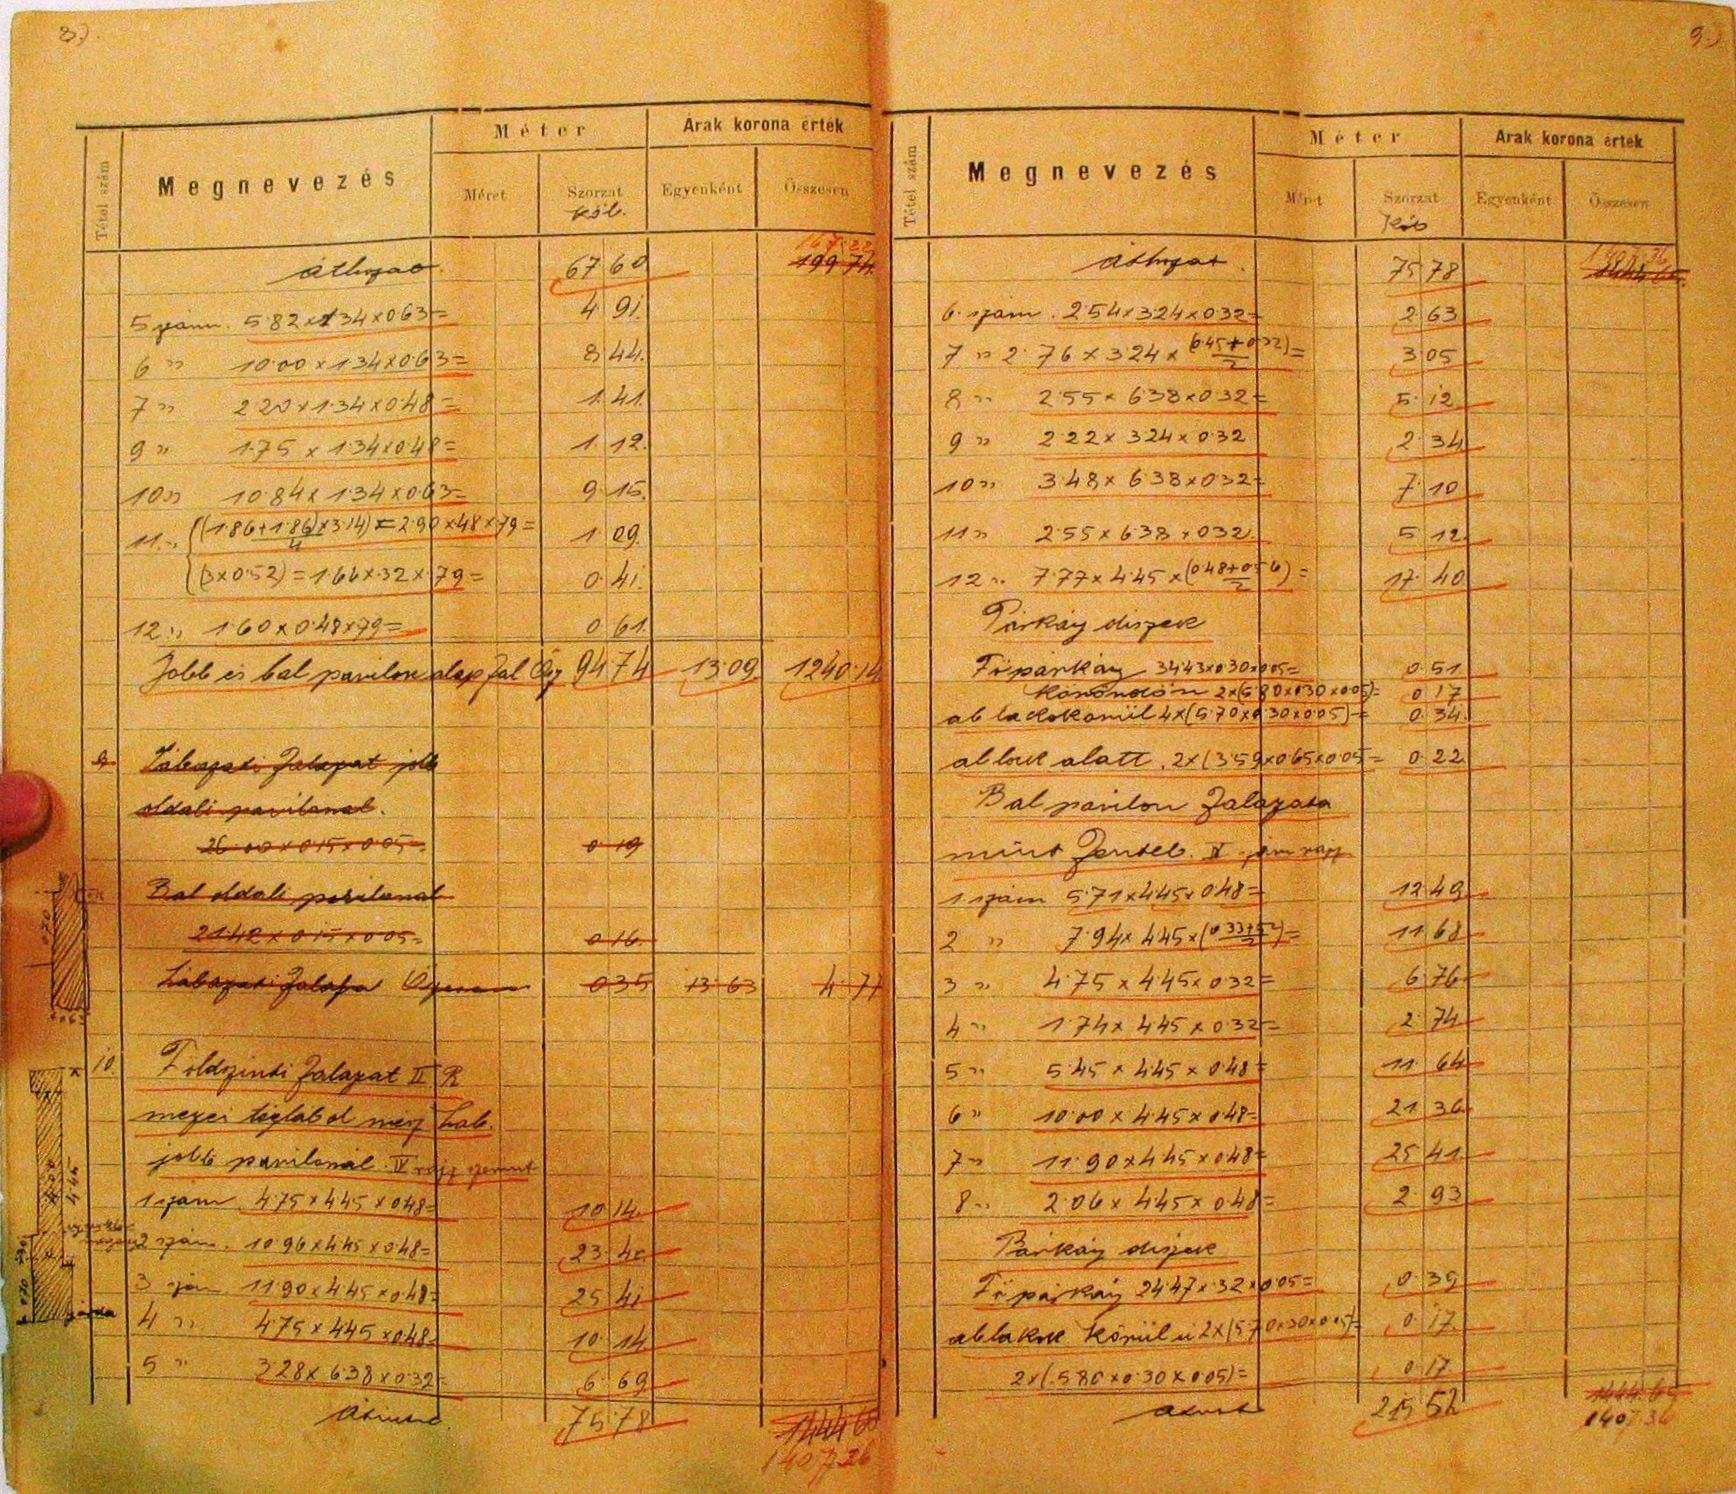 8.)
Tétel szám
Megnevezés
Méter
Árak korona érték
Méret
Szorzat
Köb.
Egyenként
Összesen
Áthozat 67 60 167.22 199 74
5 szám. 5.82x1.34x0.63= 4 91.
6 " 10.00x1.34x0.63= 8.44.
7 " 2.20x1.34x0.48= 1.41.
9 " 1.75x1.34x0.48= 1.12.
10 " 10.84x1.34x0.63= 9.15.
11 " ((1.86+1.86)x3.14)/4 = 2.90x48x79= 1.09.
(3x0.52)=1.66x.32x.79= 0.41.
12 " 1.60x0.48x79= 0 61.
Jobb és bal pavilon alap fal 94 74 13.09 1240.14
9 Lábazati falazat jobb
oldali pavilonnal.
26.00x0.15x0.05= 0.19
Bal oldali pavilonnal
21.42x0.15x0.05= 0.16
Lábazati falazat 0 35 13.63 4.77
10. Földszinti falazat II R
mezei téglából
jobb pavilonnál. IV rajz szerint
1 szám 4.75x4.45x0.48= 10.14.
2 szám. 10.96x4.45x0.48= 23.40
3 szám 11.90x4.45x0.48= 25 41
4 " 4.75x4.45x0.48= 10.14
5 " 3.28x6.38x0.32= 6.69
75.78 1444 65
1407.36
9.)
Tétel szám
Megnevezés
Méter
Árak korona érték
Méret
Szorzat
Köb
Egyenként
Összesen
Áthozat. 75 78 1407.36 1444 65
6 szám. 2.54x3.24x0.32= 2 63
7 " 2.76x3.24x(0.45+0.22)/2= 3 05
8 " 2.55x6.38x0.32= 5.12
9 " 2.22x3.24x0.32 2.34
10 " 3.48x6.38x0.32= 7.10
11 " 2.55x6.38x0.32. 5 12
12 " 7.77x4.45x(0.48+0.56)/2= 17.40
Párkány diszek
Főpárkány 34.43x0.30x0.05= 0.51
2x(5.80x0.30x0.05)= 0 17
ablakok körül 4x(5.70x0.30x0.05)= 0.34
ablak alatt. 2x(3.59x0.65x0.05= 0.22
Bal pavilon falazata
mint fentebb. V rajz
1 szám 5.71x4.45x0.48= 12 49
2 " 7.94x4.45x(0.33+32)/2= 11 68
3 " 4.75x4.45x0.32= 6.76
4 " 1.74x4.45x0.32= 2.74
5 " 5.45x4.45x0.48= 11 64
6 " 10.00x4.45x0.48= 21 36
7 " 11.90x4.45x0.48= 25 41
8 " 2.06x4.45x0.48= 2.93
Párkány diszek
Főpárkány 24.47x.32x0.05= 0.39
ablakok körül 2x(5.70x30x0.05)= 0.17.
2x(.580x0.30x0.05)= 0 17.
215 52 1444.65
1407.36